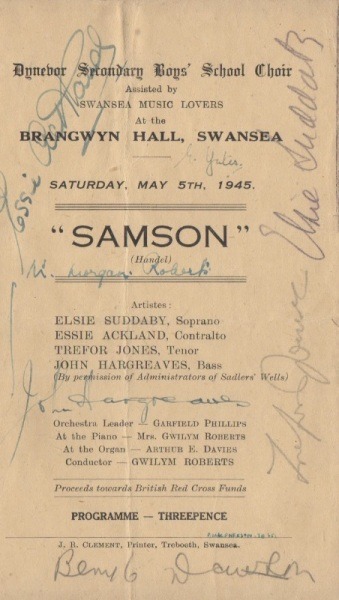 Dynevor Secondary Boys' School Choir
Assisted by
SWANSEA MUSIC LOVERS
At the
BRANGWYN HALL, SWANSEA
SATURDAY, MAY 5TH, 1945.
"SAMSON"
(Handel)
Morgan Roberts
Artistes:
ELSIE SUDDABY, Soprano
ESSIE ACKLAND, Contralto
TREFOR JONES, Tenor
JOHN HARGREAVES, Bass
(By permission of Administrators of Sadlers' Wells)
John Hargreaves
Orchestra Leader — GARFIELD PHILLIPS
At the Piano — Mrs. GWILYM ROBERTS
At the Organ — ARTHUR E. DAVIES
Conductor — GWILYM ROBERTS
Proceeds towards British Red Cross Funds
PROGRAMME — THREEPENCE
J. R. CLEMENT, Printer, Treboeth, Swansea.
Essie Ackland
Elsie Suddaby
Trefor Jones